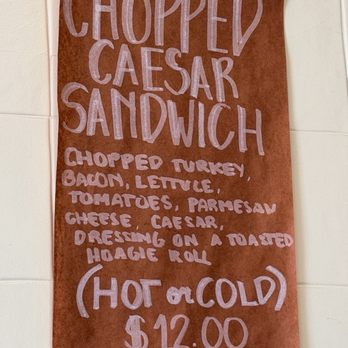 CHOPPED
CAESAR
SANDWICH
CHOPPED TURKEY,
BACON, LETTUCE,
TOMATOES, PARMESAN
CHEESE, CAESAR,
DRESSING ON A TOASTED
HOAGIE ROLL
(HOT or COLD)
$12.00